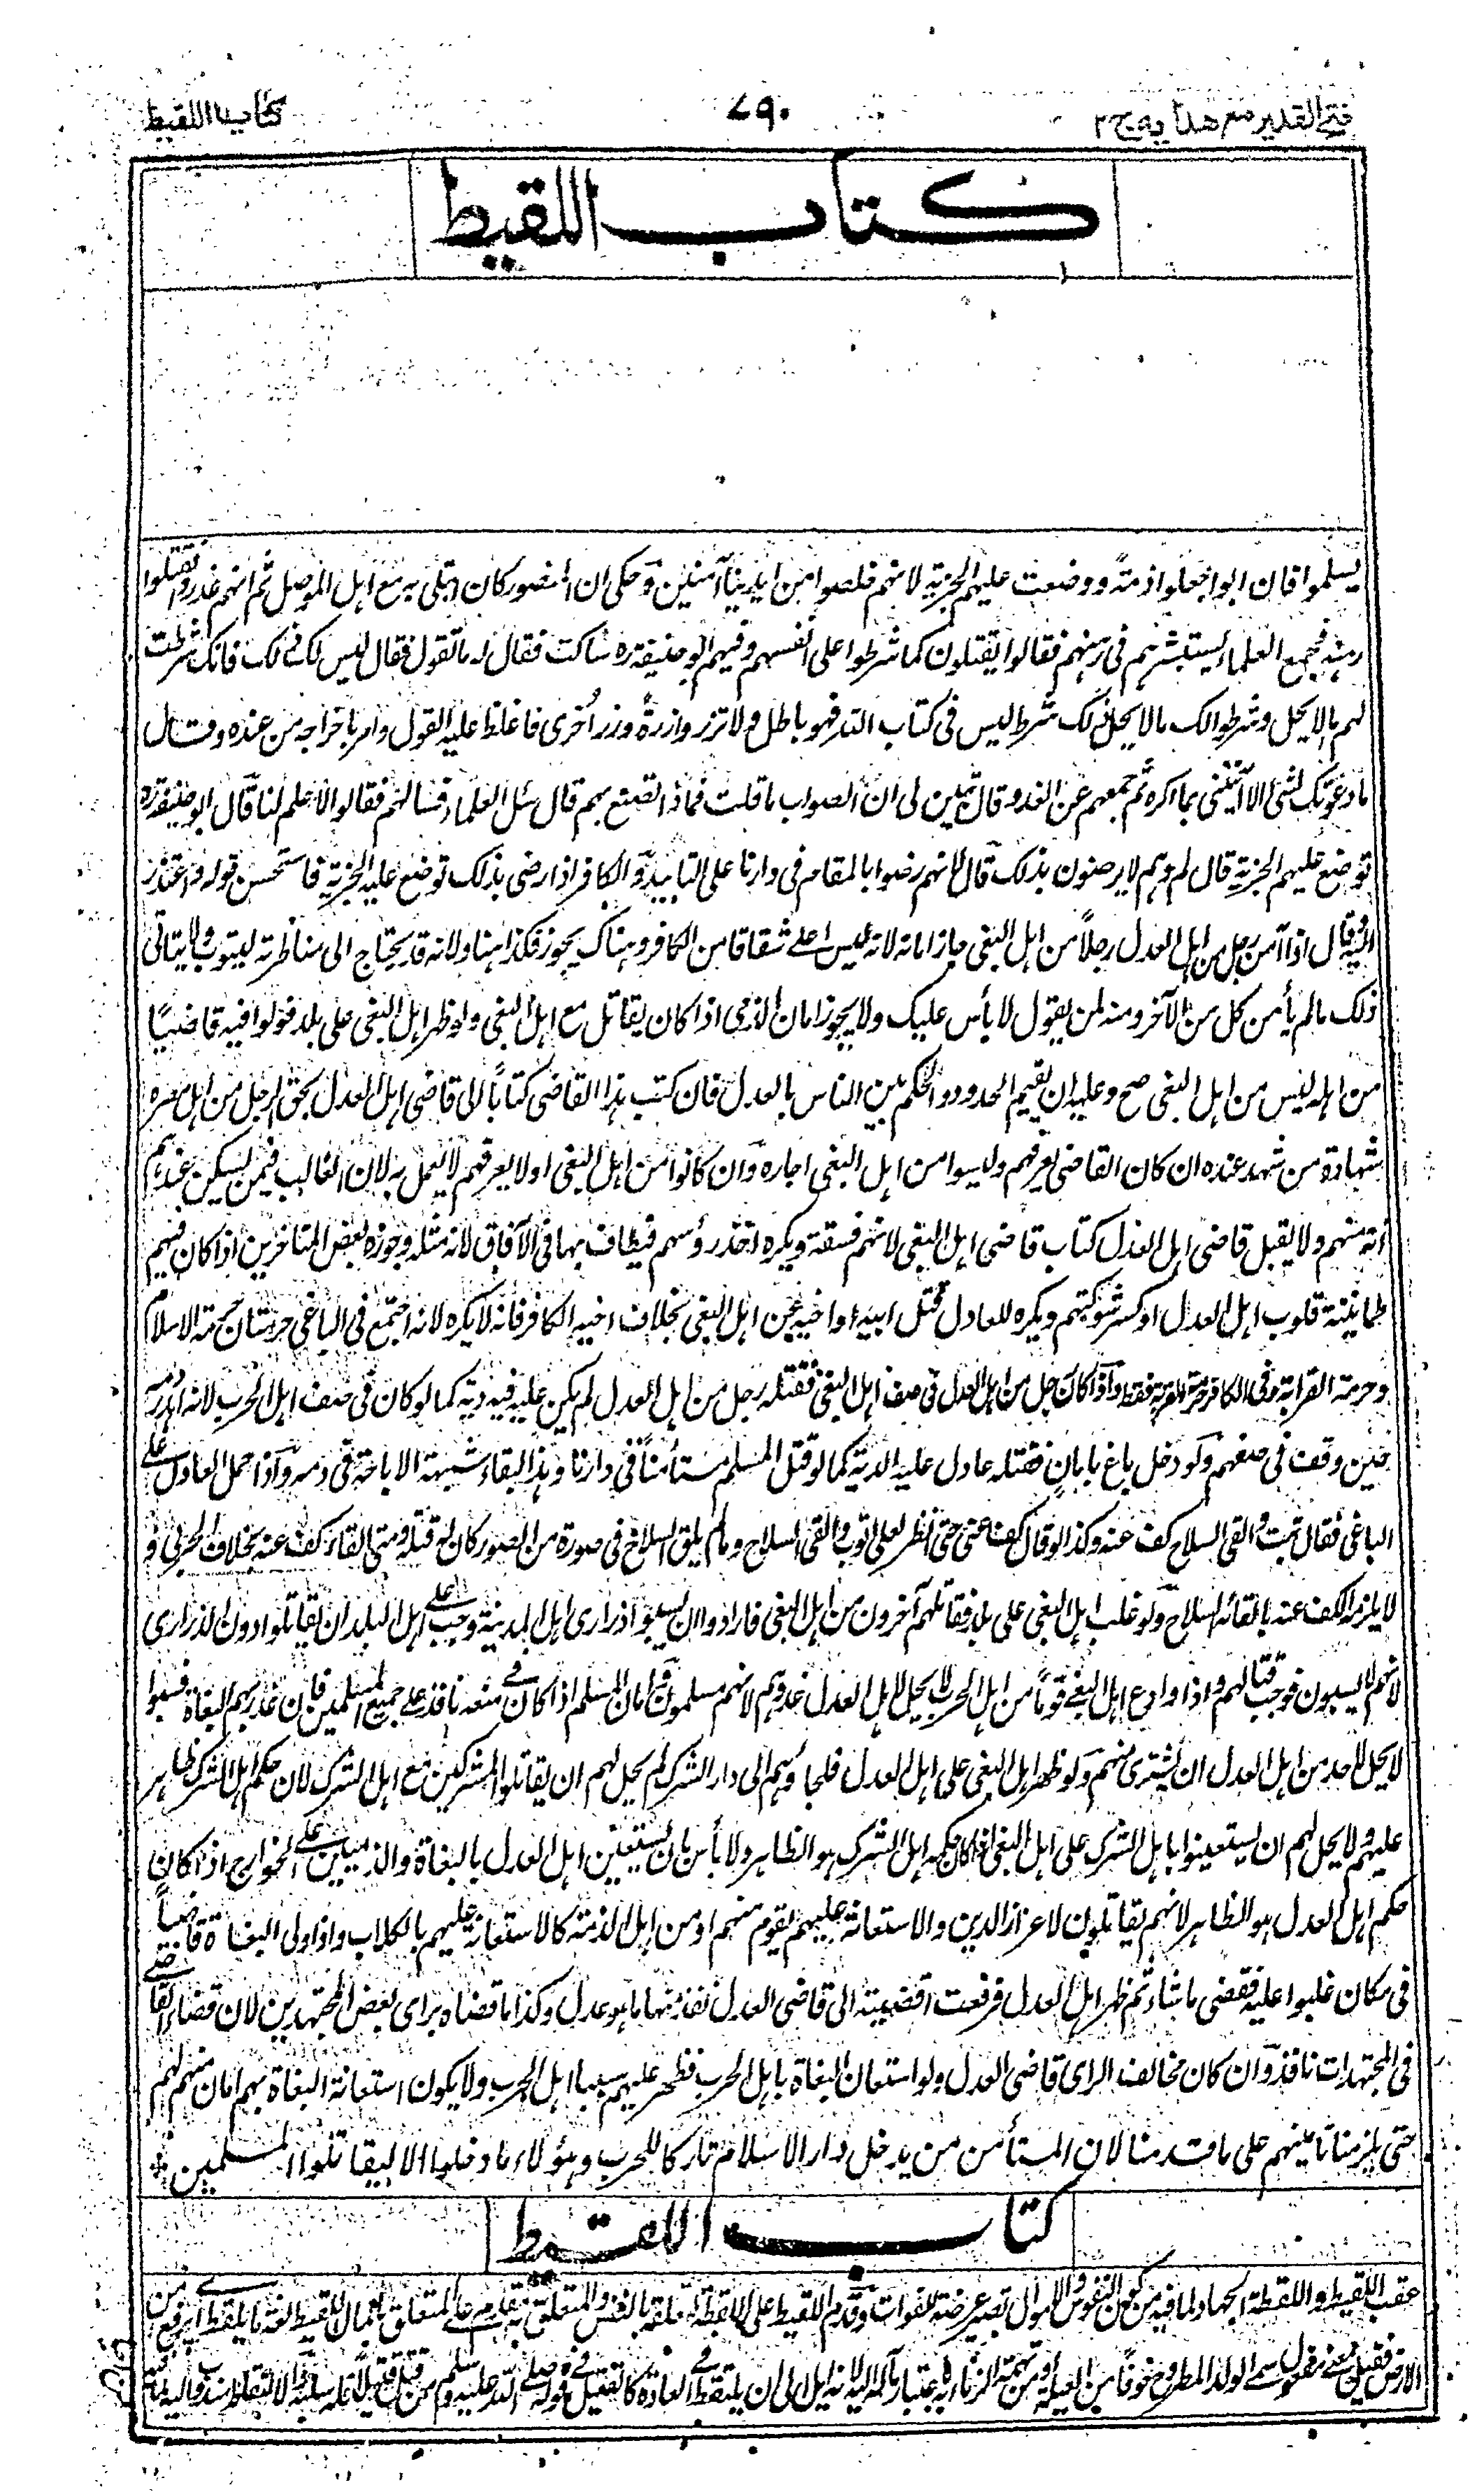 فتح القدير مع هدايه ج ٢
٧٩٠
كتاب اللقيط
كتاب اللقيط
يسلموا فان ابوا جعلوا ذمة ووضعت عليهم الجزية لانهم خلصوا من ايدينا آمنين وحكى ان المنصور كان ابتلى به مع اهل الموصل ثم انهم غدروا وقتلوا
رهنه فجمع العلماء يستشيرهم في رهنهم فقالوا يقتلون كما شرطوا على انفسهم وفيهم ابو حنيفة ره ساكت فقال له ما تقول فقال ليس لك ذلك فانك شرطت
لهم ما لا يحل وشرطوا لك ما لا يحل لك شرط ليس في كتاب الله فهو باطل ولا تزر وازرة وزر اخرى فاغلظ عليه القول وامر باخراجه من عنده وقال
ما دعوتك لشئ الا أتيتني بما اكره ثم جمعهم من الغد وقال تبين لي ان الصواب ما قلت فماذا نصنع بهم قال سل العلماء فسألهم فقالوا لا علم لنا قال ابو حنيفة ره
توضع عليهم الجزية قال لم وهم لا يرضون بذلك قال لانهم رضوا بالمقام في دارنا على التابيد والكافر اذا رضى بذلك توضع عليه الجزية فاستحسن قوله واعتذر
اليه وقال اذا آمن رجل من اهل العدل رجلاً من اهل البغى جاز امانه لانه ليس اعلى شقاقا من الكافر وهناك يجوز فكذا هنا ولانه قد يحتاج الى مناظرته ليتوب ولا يتاتى
ذلك ما لم يأمن كل من الآخر ومنه ان يقول لا بأس عليك ولا يجوز امان الذمى اذا كان يقاتل مع اهل البغى ولو ظهر اهل البغى على بلد فولوا فيه قاضيًا
من اهله ليس من اهل البغى صح وعليه ان يقيم الحدود والحكم بين الناس بالعدل فان كتب هذا القاضى كتاباً الى قاضى اهل العدل بحق لرجل من اهل مصره
بشهادة من شهد عنده ان كان القاضى يعرفهم وليسوا من اهل البغى اجازه وان كانوا من اهل البغى او لا يعرفهم لا يعمل به لان الغالب فيمن يسكن عندهم
انه منهم ولا يقبل قاضى اهل العدل كتاب قاضى اهل البغى لانهم فسقة ويكره اخذ رؤسهم فيطاف بها في الآفاق لانه مثلة وجوزه بعض المتاخرين اذا كان فيهم
طمانينة قلوب اهل العدل او كسر شوكتهم ويكره للعادل قتل ابيه او اخيه من اهل البغى بخلاف اخيه الكافر فانه لا يكره لانه اجتمع في الباغى حرمتان حرمة الاسلام
وحرمة القرابة وفي الكافر حرمة القرابة فقط واذا كان رجل من اهل العدل في صف اهل البغى فقتله رجل من اهل العدل لم يكن عليه فيه دية كما لو كان في صف اهل الحرب لانه اهدر دمه
حين وقف في صفهم ولو دخل باغ بامان فقتله عادل عليه الدية كما لو قتل المسلم مستأمناً في دارنا وهذا لبقاء شبهة الاباحة في دمه واذا حمل العادل على
الباغى فقال تبت والقى السلاح كف عنه وكذا لو قال كف عنى حتى انظر لعلى اتوب والقى السلاح وما لم يلق السلاح في صورة من الصور كان له قتله ومتى القاه كف عنه بخلاف الحربى و
لا يلزمه الكف عنه بالقائه السلاح ولو غلب اهل البغى على بلد فقاتلهم آخرون من اهل البغى فارادوا ان يسبوا ذرارى اهل المدينة وجب على اهل البلد ان يقاتلوا دون الذرارى
لانهم لا يسبون فوجب قتالهم واذا وادع اهل البغى قوماً من اهل الحرب لا يحل لاهل العدل غدرهم لانهم مسلمون وامان المسلم اذا كان في منعة نافذ على جميع المسلمين فان غدر بهم البغاة فسبوا
لا يحل لاحد من اهل العدل ان يشترى منهم ولو ظهر اهل البغى على اهل العدل فلجاؤهم الى دار الشرك لم يحل لهم ان يقاتلوا المشركين مع اهل الشرك لان حكم اهل الشرك ظاهر
عليهم ولا يحل لهم ان يستعينوا باهل الشرك على اهل البغى اذا كان حكم اهل الشرك هو الظاهر ولا بأس بان يستعين اهل العدل بالبغاة والذميين على الخوارج اذا كان
حكم اهل العدل هو الظاهر لانهم يقاتلون لاعزاز الدين والاستعانة عليهم بقوم منهم او من اهل الذمة كالاستعانة عليهم بالكلاب واذا ولى البغاة قاضياً
في مكان غلبوا عليه فقضى ما شاء ثم ظهر اهل العدل فرفعت اقضيته الى قاضى العدل نفذ منها ما هو عدل وكذا ما قضاه براى بعض المجتهدين لان قضاء القاضى
في المجتهدات نافذ وان كان مخالف الراى قاضى العدل ولو استعان البغاة باهل الحرب فظهر عليهم سبينا اهل الحرب ولا يكون استعانة البغاة بهم امان منهم لهم
حتى يلزمنا تامينهم على ما قدمنا لان المستأمن من يدخل دار الاسلام تاركا للحرب وهؤلاء ما دخلوا الا ليقاتلوا المسلمين
كتاب اللقيط
عقب اللقيط واللقطة الجهاد لما فيه من كون النفوس والاموال تصير عرضة للفوات وقدم اللقيط على اللقطة لتعلقه بالنفس والمتعلق بها مقدم على المتعلق بالمال اللقيط لغة ما يلقط اى يرفع من
الارض فعيل بمعنى مفعول سمى الولد المطروح خوفاً من العيلة او من تهمة الزنا به باعتبار مآله اليه لانه آيل الى ان يلتقط في العادة كالقتيل في قوله صلى الله عليه وسلم من قتل قتيلاً فله سلبه